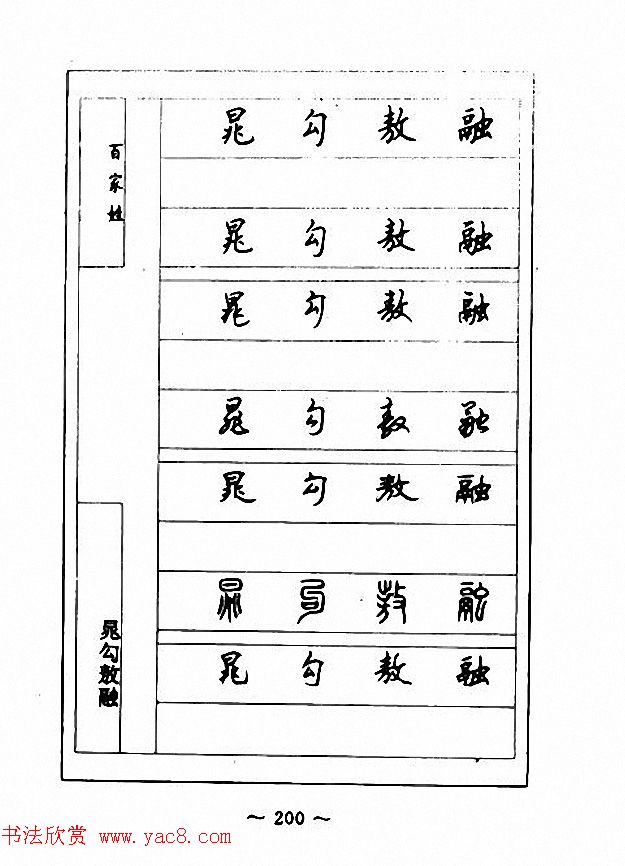 百家姓
晁勾敖融
晁 勾 敖 融
晁 勾 敖 融
晁 勾 敖 融
晁 勾 敖 融
晁 勾 敖 融
晁 勾 敖 融
晁 勾 敖 融
~ 200 ~
书法欣赏 www.yac8.com